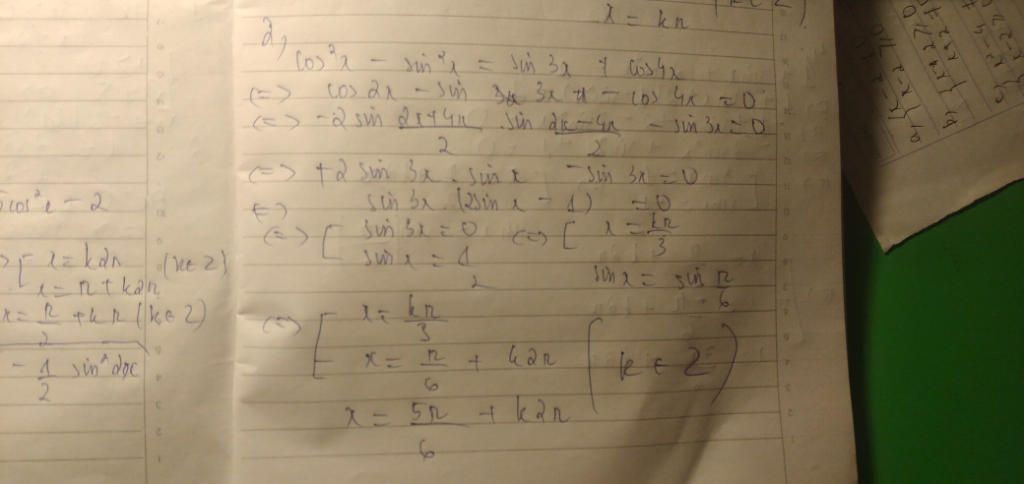 x = kπ (k ∈ Z)
2,
cos²x - sin²x = sin 3x + cos4x
<=> cos 2x - sin 3x - cos 4x = 0
<=> -2 sin (2x+4x)/2 . sin (2x-4x)/2 - sin 3x = 0
<=> +2 sin 3x . sin x - sin 3x = 0
<=> sin 3x . (2sin x - 1) = 0
<=> [ sin 3x = 0 <=> [ x = kπ/3
sin x = 1/2 sin x = sin π/6
<=> [ x = kπ/3
x = π/6 + k2π (k ∈ Z)
x = 5π/6 + k2π
cos²x - 2
[ x = k2π (k ∈ Z)
x = π + k2π
x = π/2 + kπ (k ∈ Z)
- 1/2 sin²2x